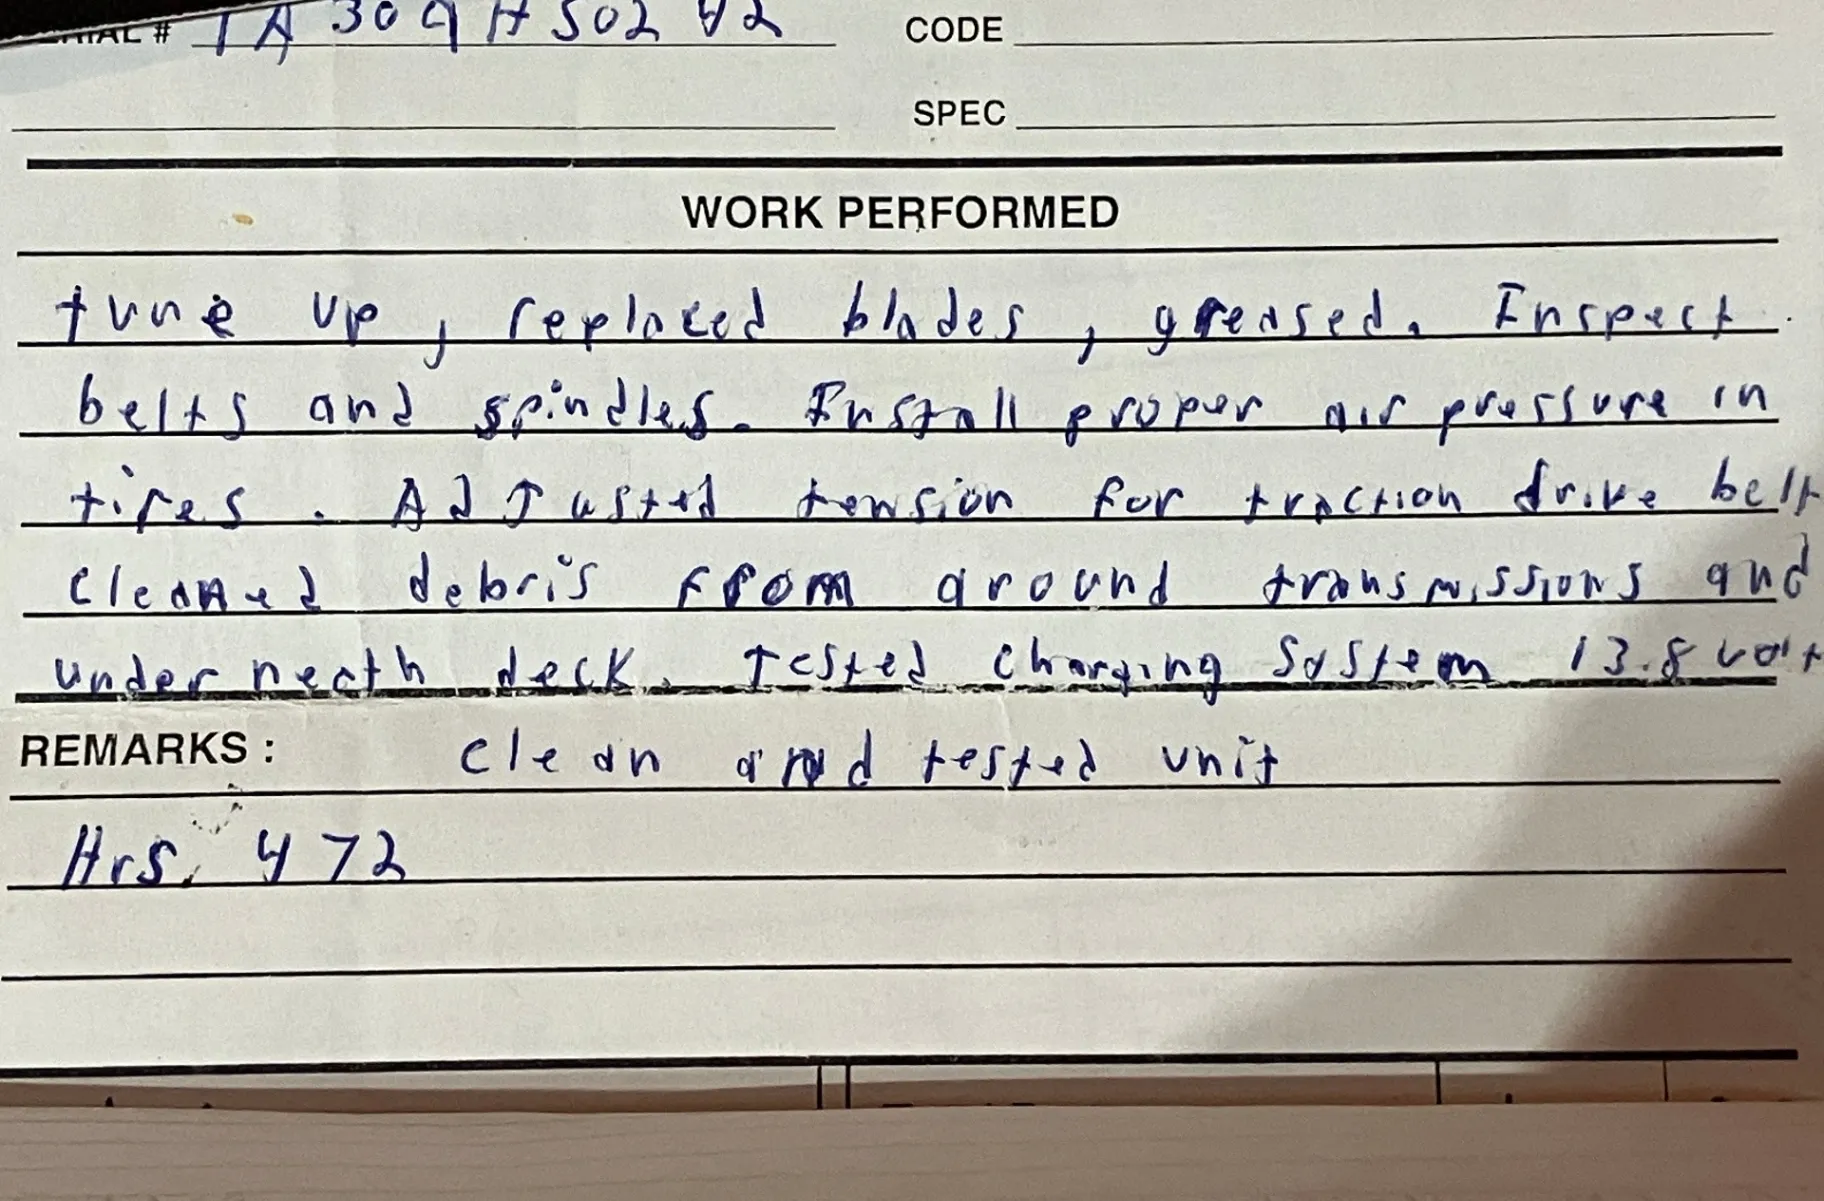 SERIAL # 1A309H50242 CODE
SPEC
WORK PERFORMED
tune up, replaced blades, greased. Inspect
belts and spindles. Install proper air pressure in
tires. AdJusted tension for traction drive belt
cleaned debris from around transmissions and
underneath deck. Tested charging system 13.8 volt
REMARKS: clean and tested unit
Hrs. 472